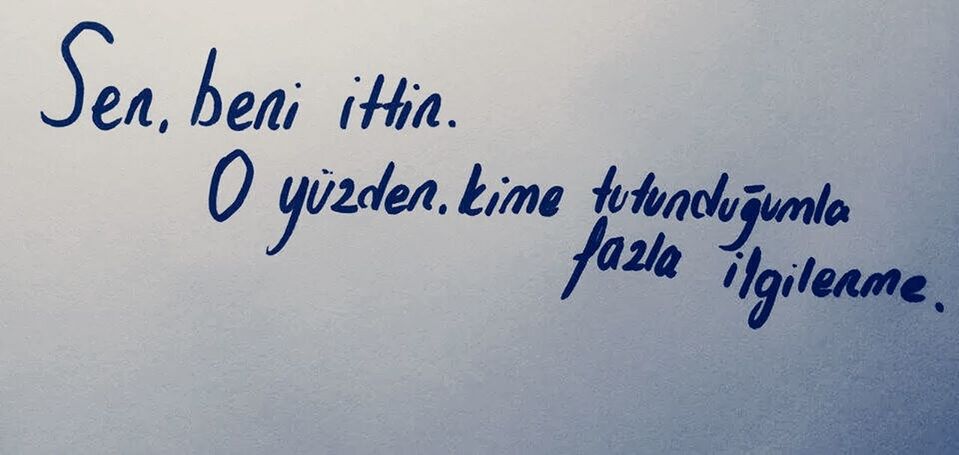 Sen, beni ittin.
O yüzden. kime tutunduğumla
fazla ilgilenme.